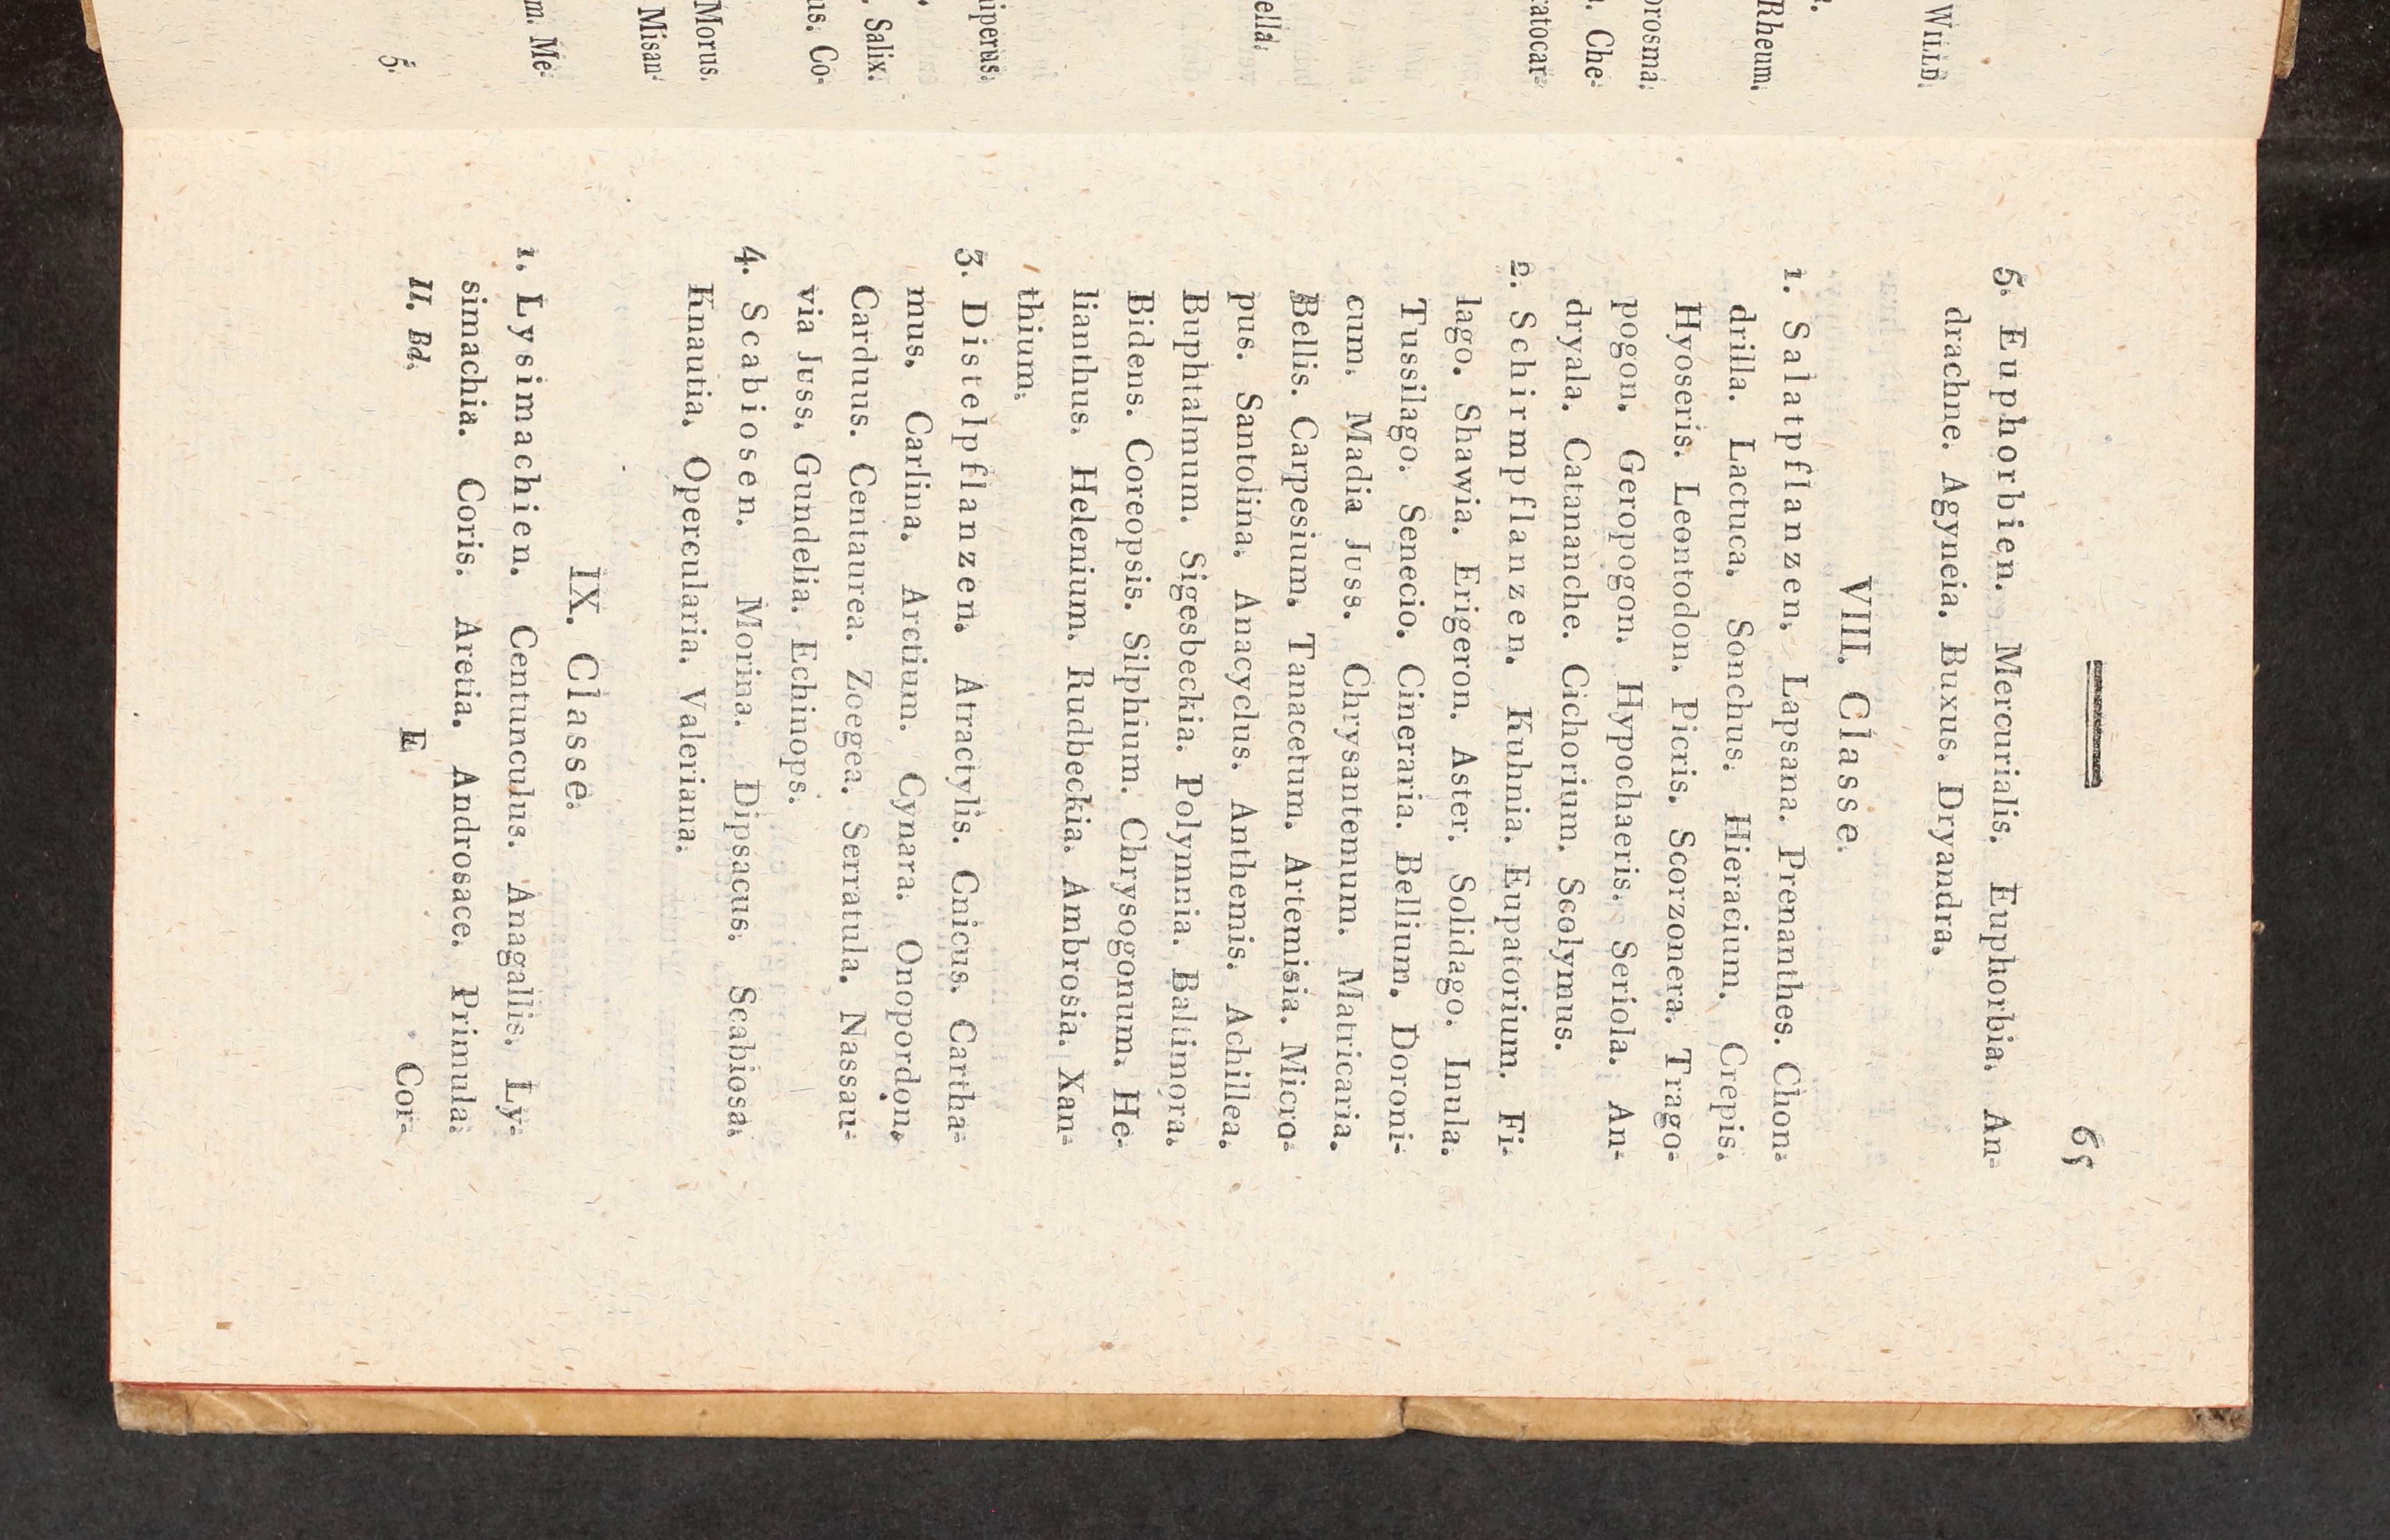 Willd.
Rheum.
prosma.
. Che-
ratocar-
ella.
iperus.
. Salix.
us. Co-
Morus.
Misan-
m. Me-
5.
65
5. Euphorbien. Mercurialis. Euphorbia. An-
drachne. Agyneia. Buxus. Dryandra.
VIII. Classe.
1. Salatpflanzen. Lapsana. Prenanthes. Chon-
drilla. Lactuca. Sonchus. Hieracium. Crepis.
Hyoseris. Leontodon. Picris. Scorzonera. Trago-
pogon. Geropogon. Hypochaeris. Seriola. An-
dryala. Catananche. Cichorium. Scolymus.
2. Schirmpflanzen. Kuhnia. Eupatorium. Fi-
lago. Shawia. Erigeron. Aster. Solidago. Inula.
Tussilago. Senecio. Cineraria. Bellium. Doroni-
cum. Madia Juss. Chrysantemum. Matricaria.
Bellis. Carpesium. Tanacetum. Artemisia. Micro-
pus. Santolina. Anacyclus. Anthemis. Achillea.
Buphtalmum. Sigesbeckia. Polymnia. Baltimora.
Bidens. Coreopsis. Silphium. Chrysogonum. He-
lianthus. Helenium. Rudbeckia. Ambrosia. Xan-
thium.
3. Distelpflanzen. Atractylis. Cnicus. Cartha-
mus. Carlina. Arctium. Cynara. Onopordon.
Carduus. Centaurea. Zoegea. Serratula. Nassau-
via Juss. Gundelia. Echinops.
4. Scabiosen. Morina. Dipsacus. Scabiosa.
Knautia. Opercularia. Valeriana.
IX. Classe.
1. Lysimachien. Centunculus. Anagallis. Ly-
simachia. Coris. Aretia. Androsace. Primula.
II. Bd. E Cor-